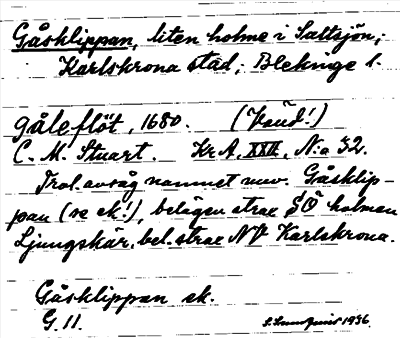 Gåsklippan, liten holme i Saltsjön;
Karlskrona stad; Blekinge l.
gåleflöt, 1680. (Vänd!)
C. M. Stuart. Kr A, XXII, N:o 32.
Trol. avsåg namnet nuv. Gåsklip-
pan (se ek!), belägen strax SÖ holmen
Ljungskär, bel. strax NV Karlskrona.
Gåsklippan ek.
G. 11.
1936.